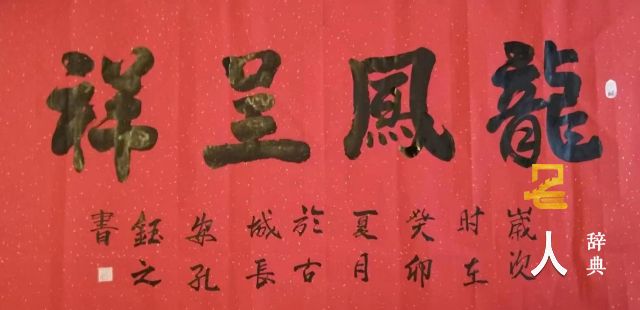 龍鳳呈祥
嵗次
时在
癸卯
夏月
於古
城長
安孔
鈺之
書
名人辞典